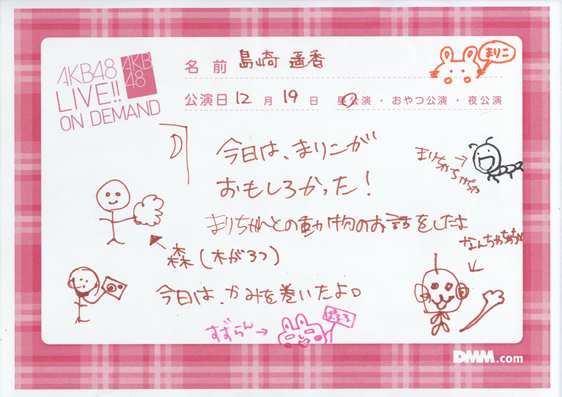 AKB48
LIVE!!
ON DEMAND
AKB
48
名前 島崎 遥香
まりこ
公演日 12月19日 昼公演・おやつ公演・夜公演
今日は、まりこが
おもしろかった！
まりちゃんとの動物のお話をしたよ
森(木が3つ)
今日は、かみを巻いたよ。
すずらん→
DMM.com